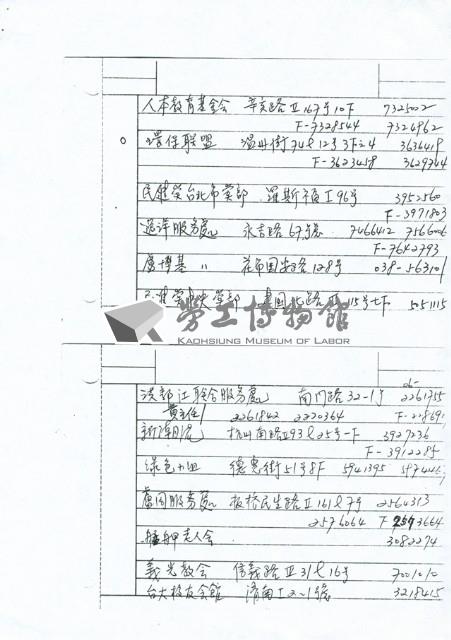 人本教育基金会 辛亥路Ⅱ167号10F 7325002
F-7328544 7324862
環保联盟 温州街74巷12弄3F之4 3636419
F-3623458 3629744
民進党台北市党部 羅斯福Ⅰ96号 3952560
F-3971803
永吉路67号 7466412 7566006
F-7642793
盧博基 〃 花市国 路128号 038-56310
建国北路 15号七F 5051115
勞工博物館
KAOHSIUNG MUSEUM OF LABOR
06-
聯合服务處 南門路32-1号 2261755
黃主任 2261842 2220364 F-218691
新潮流 杭州南路Ⅰ93巷25号-F 3927236
F-3912285
綠色小組 德惠街51号8F 5941395
服务處 板橋民生路Ⅱ161巷7号 2560313
2576064 F 2573664
艋舺老人会 3082274
義光教会 信義路Ⅲ31巷16号 7001010
台大校友会館 濟南Ⅰ2-1號 3218415